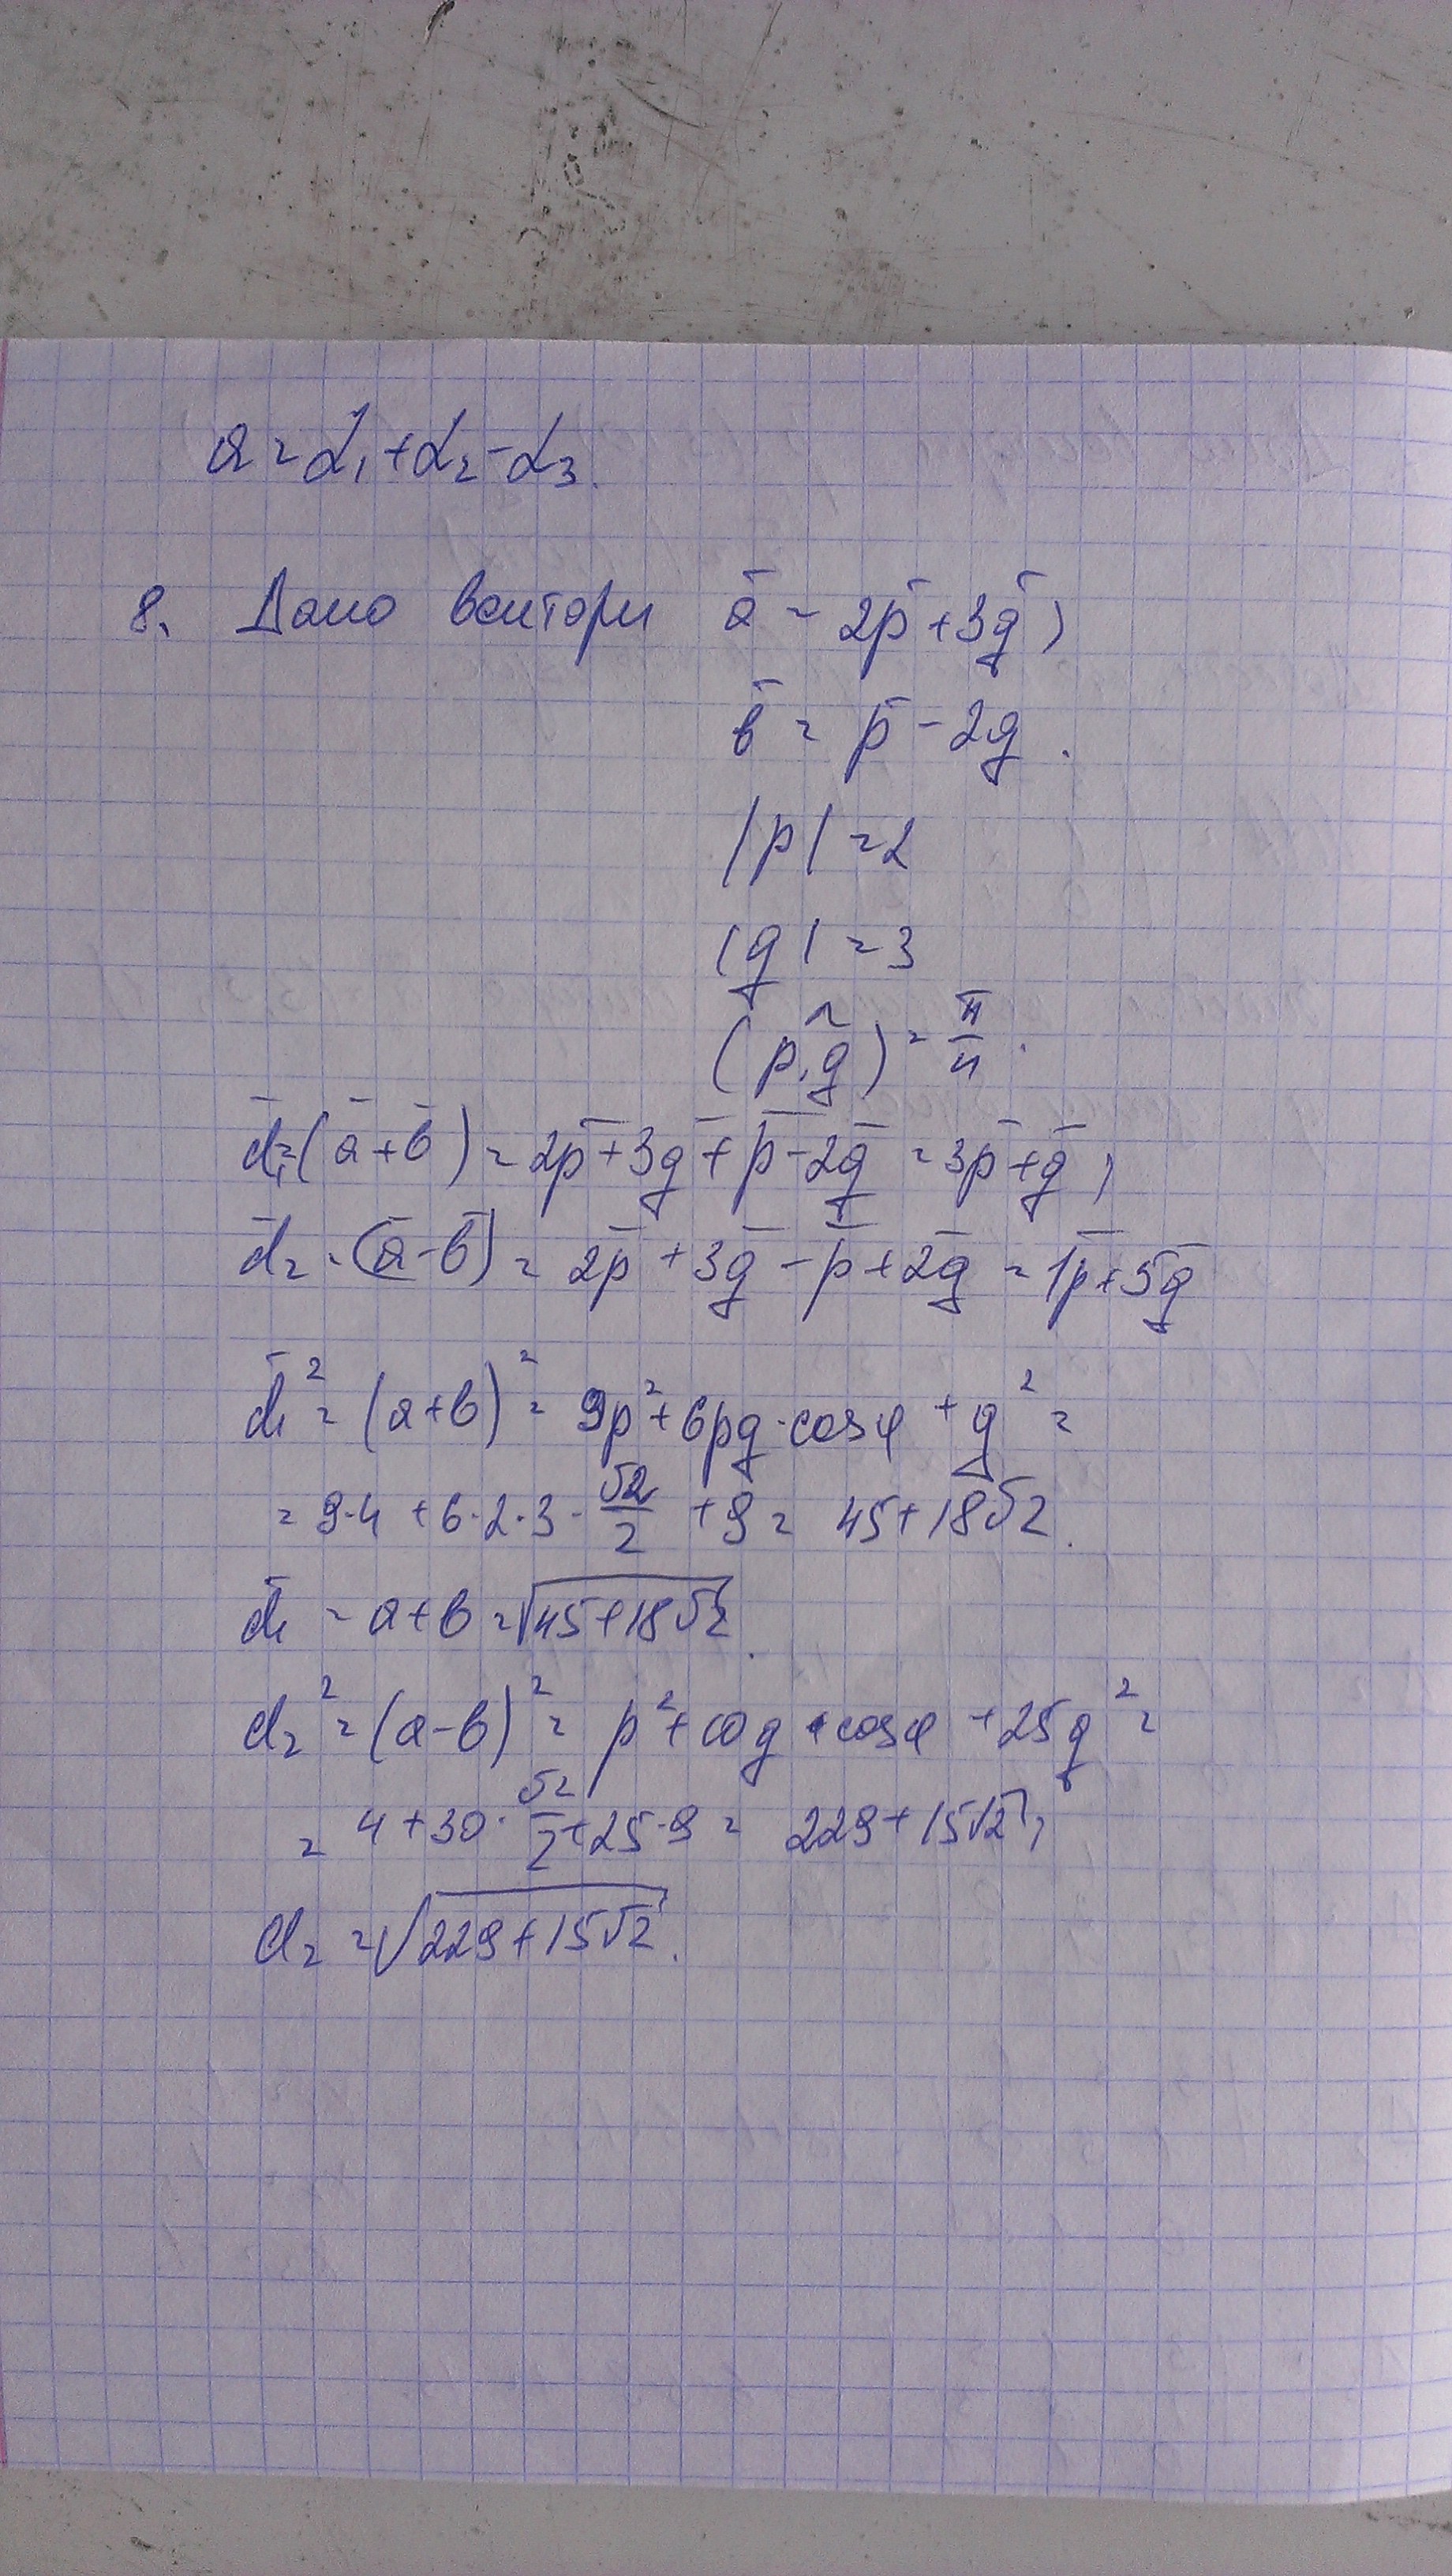 a = α₁ + α₂ - α₃.
8. Дано вектори a̅ = 2p̅ + 3q̅,
b̅ = p̅ - 2q.
|p| = 2
|q| = 3
(p,^q) = π/4.
d̅₁ = (a̅ + b̅) = 2p̅ + 3q̅ + p̅ - 2q̅ = 3p̅ + q̅,
d̅₂ = (a̅ - b̅) = 2p̅ + 3q̅ - p̅ + 2q̅ = 1p̅ + 5q̅
d̅₁² = (a+b)² = 9p² + 6pq · cos φ + q² =
= 9·4 + 6·2·3· √2/2 + 9 = 45 + 18√2.
d̅₁ = a + b = √(45+18√2).
d₂² = (a-b)² = p² + 10q · cos φ + 25q² =
= 4 + 30 · √2/2 + 25·9 = 229 + 15√2,
d₂ = √(229 + 15√2).